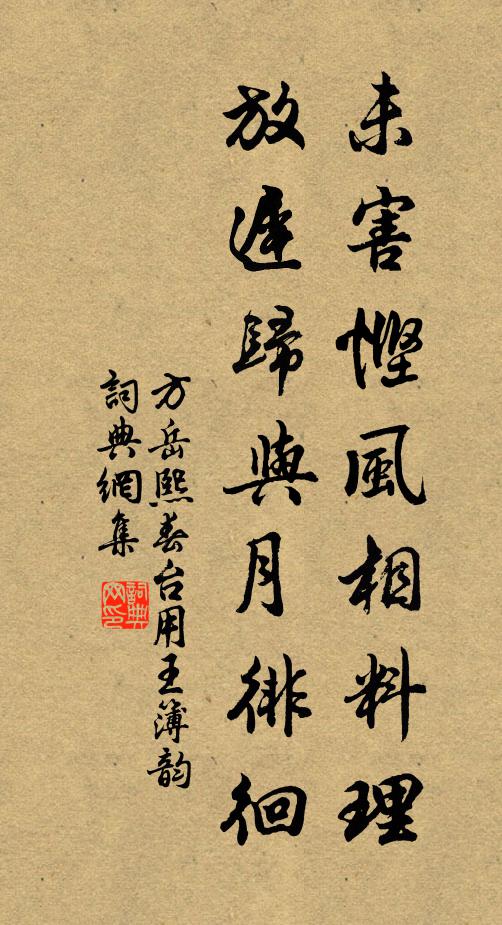 未害慳風相料理
放遲歸與月徘徊
方岳熙春台用王簿韵
詞典網集
詞典网印